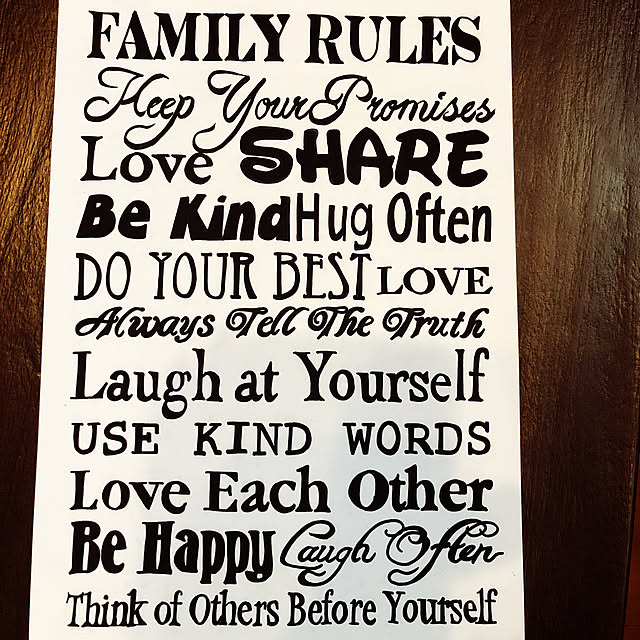 FAMILY RULES
Keep Your Promises
Love SHARE
Be Kind Hug Often
DO YOUR BEST LOVE
Always Tell The Truth
Laugh at Yourself
USE KIND WORDS
Love Each Other
Be Happy Laugh Often
Think of Others Before Yourself